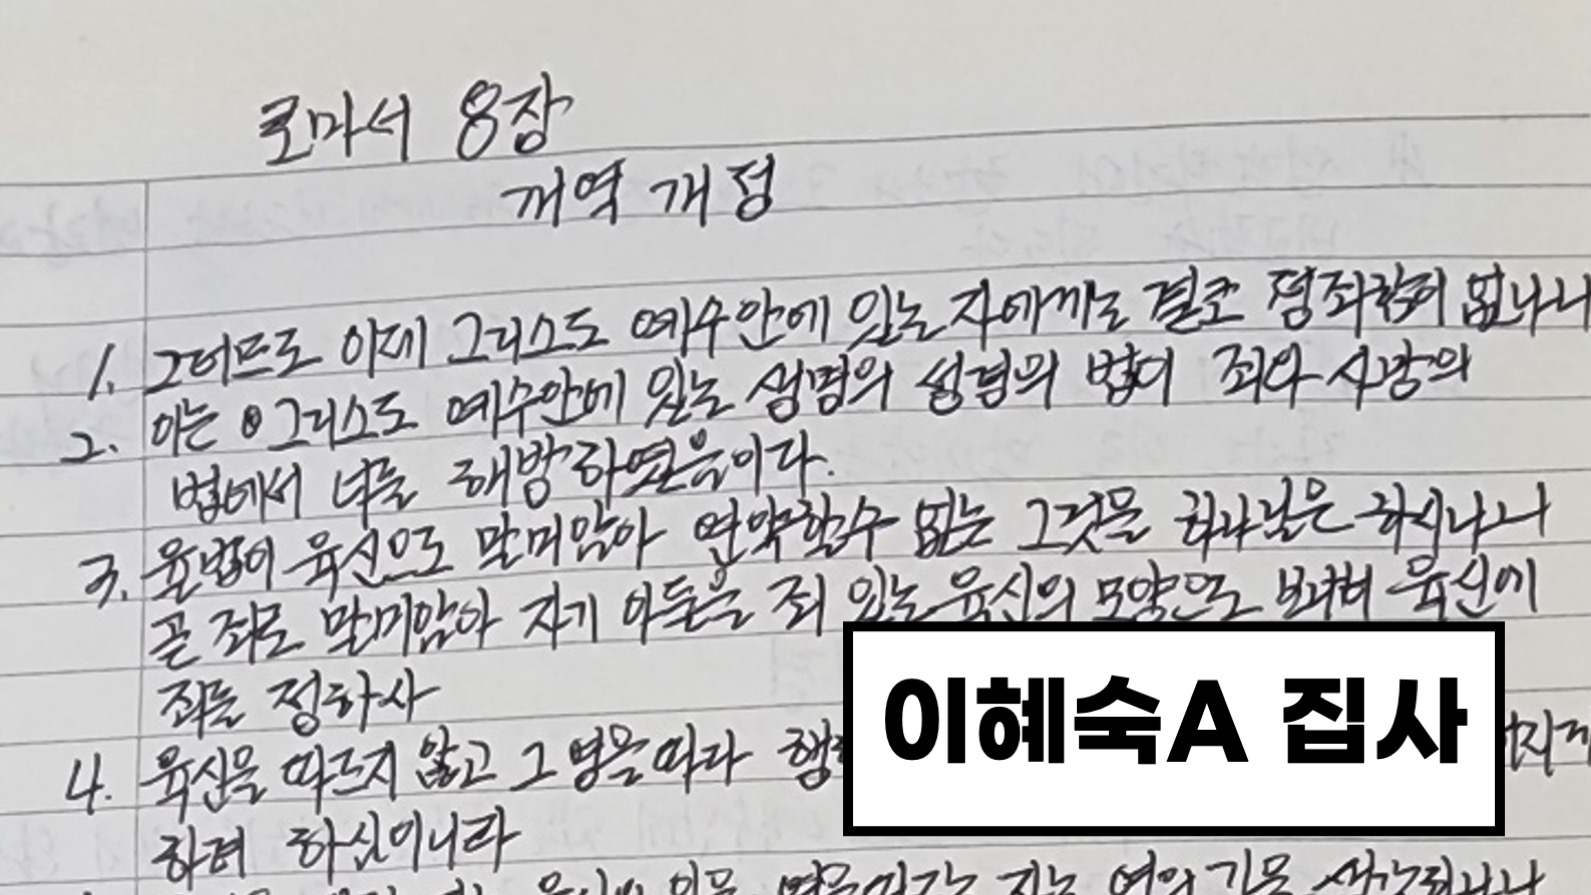 로마서 8장
개역 개정
1. 그러므로 이제 그리스도 예수안에 있는 자에게는 결코 정죄함이 없나니
2. 이는 그리스도 예수안에 있는 생명의 성령의 법이 죄와 사망의
법에서 너를 해방하였음이다.
3. 율법이 육신으로 말미암아 연약할수 없는 그것을 하나님은 하시나니
곧 죄로 말미암아 자기 아들을 죄 있는 육신의 모양으로 보내어 육신에
죄를 정하사
4. 육신을 따르지 않고 그 영을 따라 행
하려 하심이니라
이혜숙A 집사